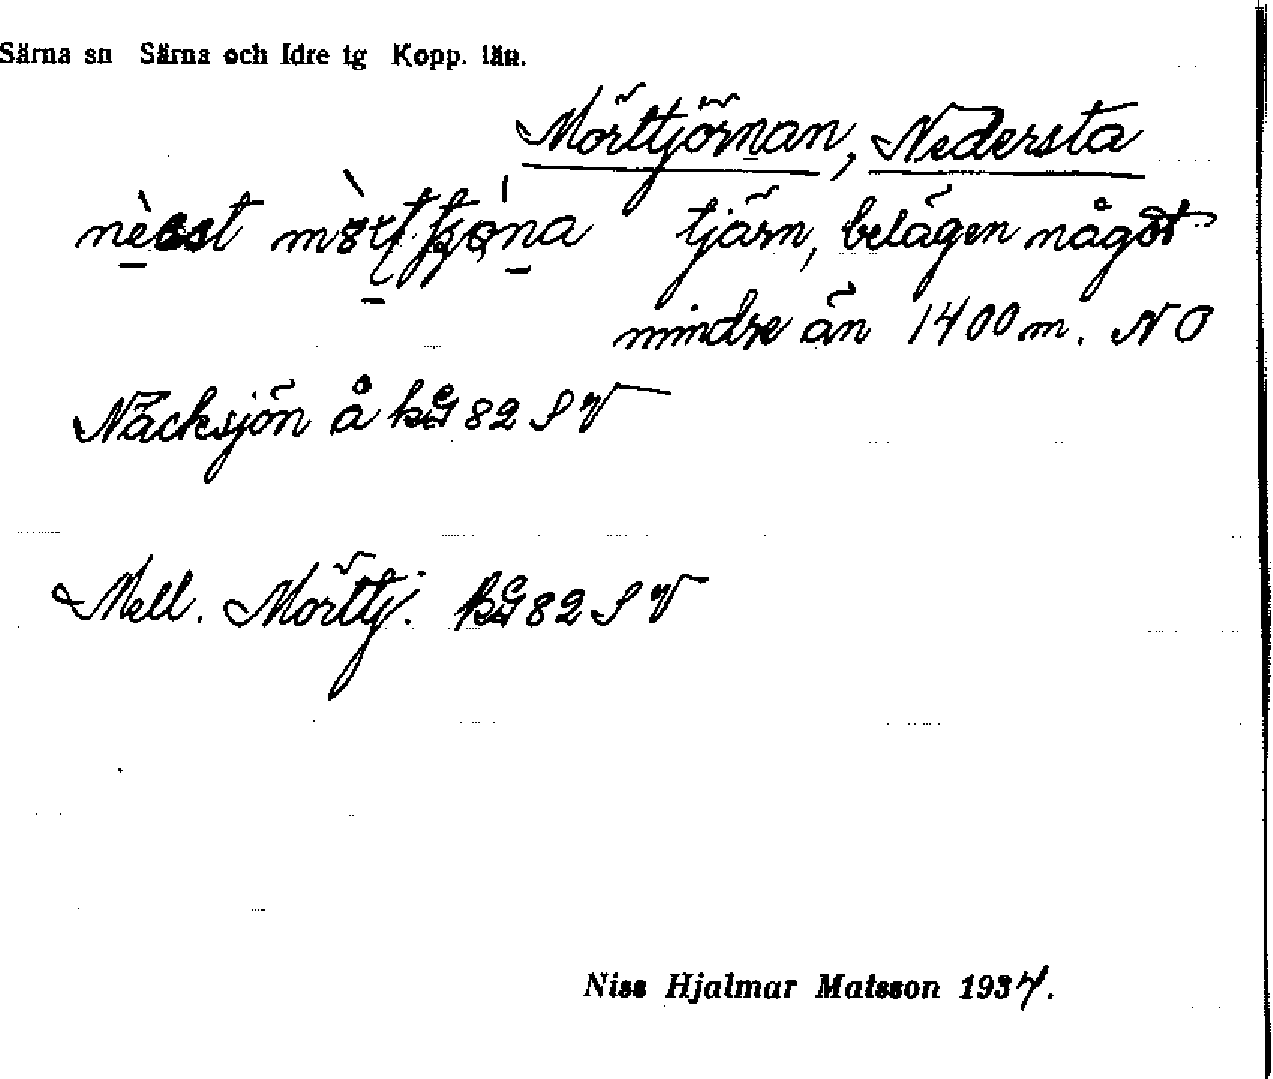 Särna sn Särna och Idre tg Kopp. län.
Mörttjörnan, Nedersta
tjärn, belägen något
mindre än 1400 m. NO
Näcksjön å kG 82 SV
Mell. Mörttj. kG 82 SV
Niss Hjalmar Matsson 1934.